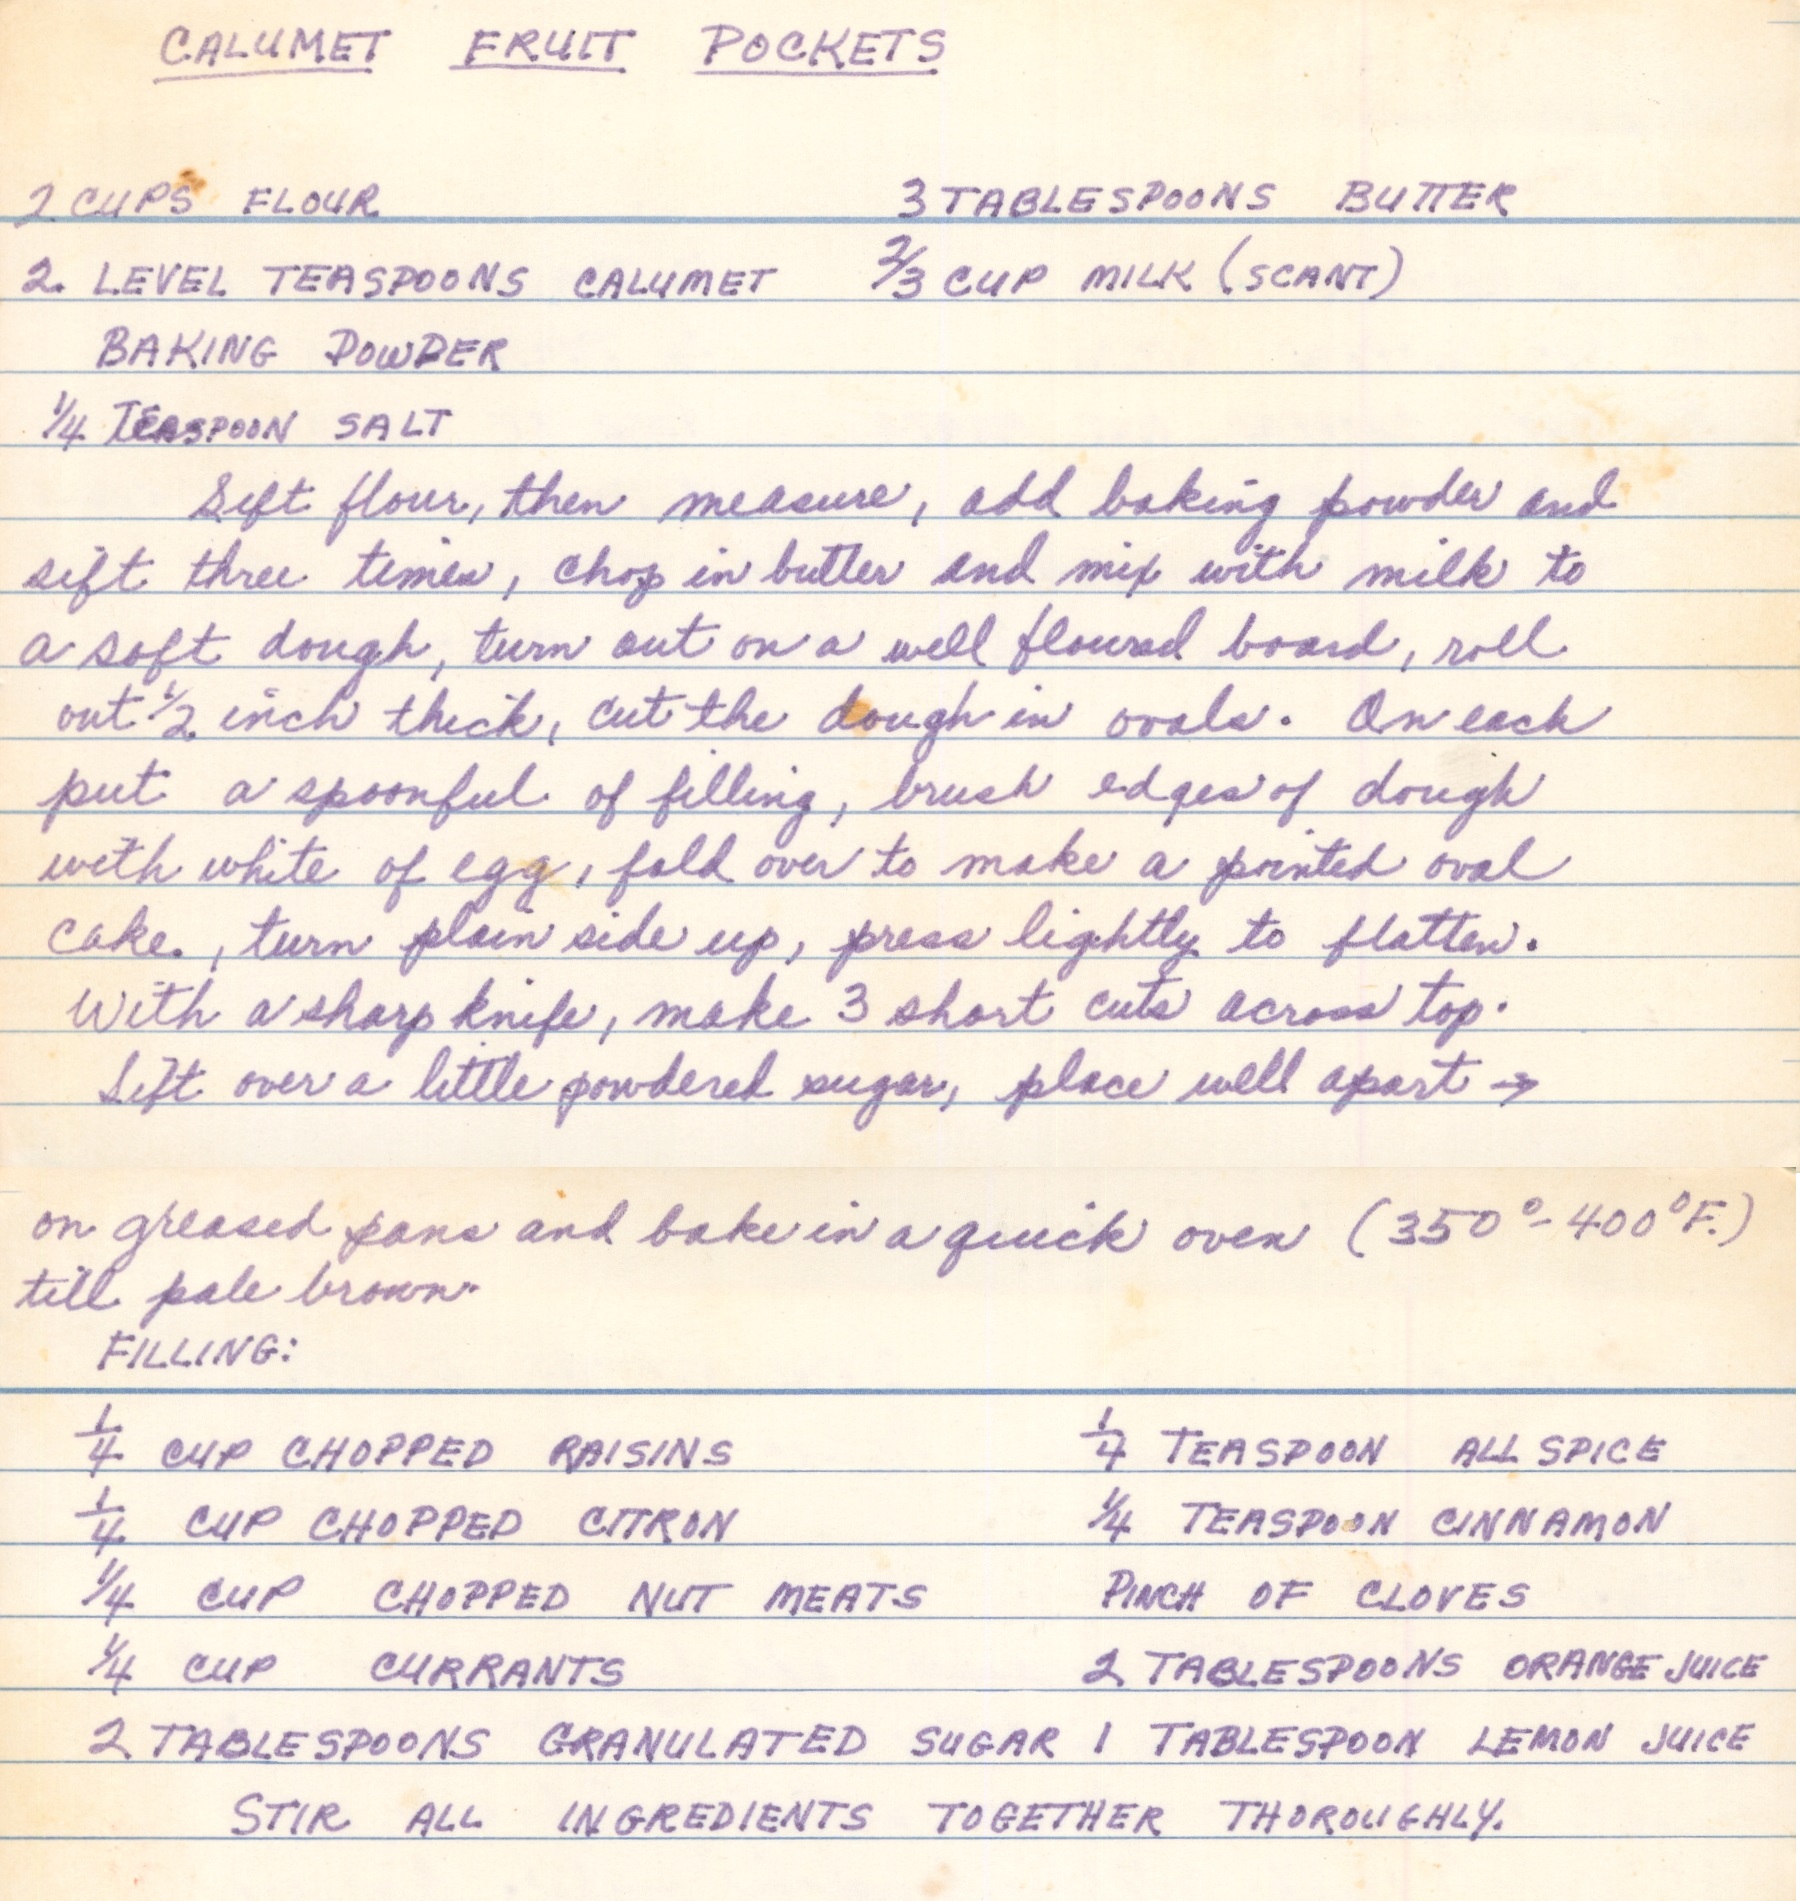 CALUMET FRUIT POCKETS
2 CUPS FLOUR 3 TABLESPOONS BUTTER
2. LEVEL TEASPOONS CALUMET 2/3 CUP MILK (SCANT)
BAKING POWDER
1/4 TEASPOON SALT
Sift flour, then measure, add baking powder and
sift three times, chop in butter and mix with milk to
a soft dough, turn out on a well floured board, roll
out 1/2 inch thick, cut the dough in ovals. On each
put a spoonful of filling, brush edges of dough
with white of egg, fold over to make a pointed oval
cake., turn plain side up, press lightly to flatten.
With a sharp knife, make 3 short cuts across top.
Sift over a little powdered sugar, place well apart →
on greased pans and bake in a quick oven (350°-400°F.)
till pale brown.
FILLING:
1/4 CUP CHOPPED RAISINS 1/4 TEASPOON ALL SPICE
1/4 CUP CHOPPED CITRON 1/4 TEASPOON CINNAMON
1/4 CUP CHOPPED NUT MEATS PINCH OF CLOVES
1/4 CUP CURRANTS 2 TABLESPOONS ORANGE JUICE
2 TABLESPOONS GRANULATED SUGAR 1 TABLESPOON LEMON JUICE
STIR ALL INGREDIENTS TOGETHER THOROUGHLY.